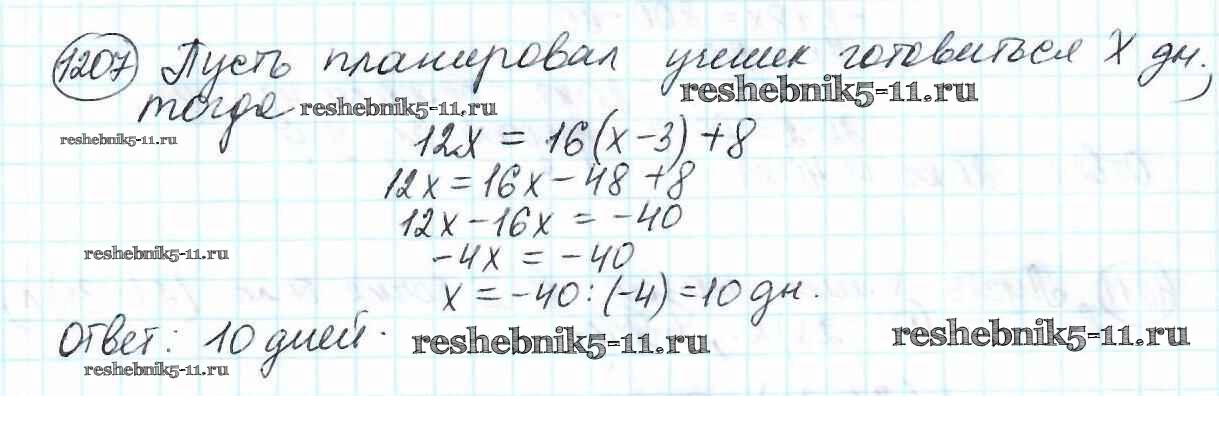 1207 Пусть планировал ученик готовиться х дн.,
reshebnik5-11.ru
тогда reshebnik5-11.ru
reshebnik5-11.ru
12х = 16(х-3)+8
12х=16х-48+8
12х-16х = -40
reshebnik5-11.ru
-4х = -40
х = -40:(-4)=10 дн.
Ответ: 10 дней.
reshebnik5-11.ru
reshebnik5-11.ru
reshebnik5-11.ru